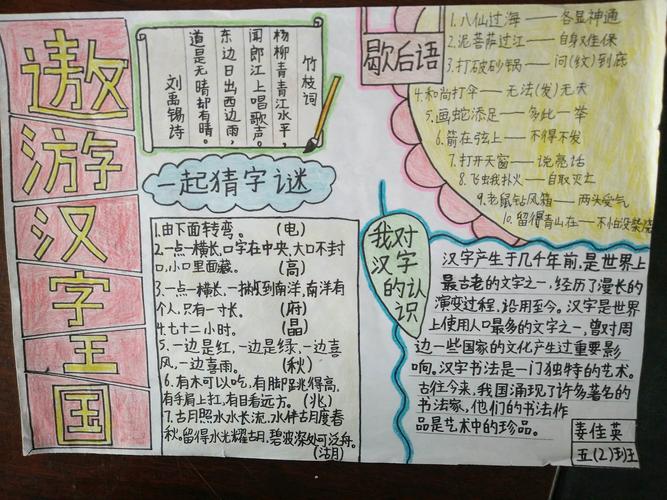 遨游汉字王国
竹枝词
杨柳青青江水平，
闻郎江上唱歌声。
东边日出西边雨，
道是无晴却有晴。
刘禹锡诗
一起猜字谜
1.由下面转弯。(电)
2.一点一横长，口字在中央，大口不封
口，小口里面藏。(高)
3.一点一横长，一撇撇到南洋，南洋有
个人，只有一寸长。(府)
4.七十二小时。(晶)
5.一边是红，一边是绿，一边喜
风，一边喜雨。(秋)
6.有木可以吃，有脚跳得高，
有手肩上扛，有目看远方。(兆)
7.古月照水水长流，水伴古月度春
秋。留得水光耀古月，碧波深处可泛舟。
(湖)
歇后语
1.八仙过海——各显神通
2.泥菩萨过江——自身难保
3.打破砂锅——问(纹)到底
4.和尚打伞——无法(发)无天
5.画蛇添足——多此一举
6.箭在弦上——不得不发
7.打开天窗——说亮话
8.飞蛾扑火——自取灭亡
9.老鼠钻风箱——两头受气
10.留得青山在——不怕没柴烧
我对
汉字
的认
识
汉字产生于几千年前，是世界上
最古老的文字之一，经历了漫长的
演变过程，沿用至今。汉字是世界
上使用人口最多的文字之一，曾对周
边一些国家的文化产生过重要影
响。汉字书法是一门独特的艺术。
古往今来，我国涌现了许多著名的
书法家，他们的书法作
品是艺术中的珍品。
姜佳英
五(2)班